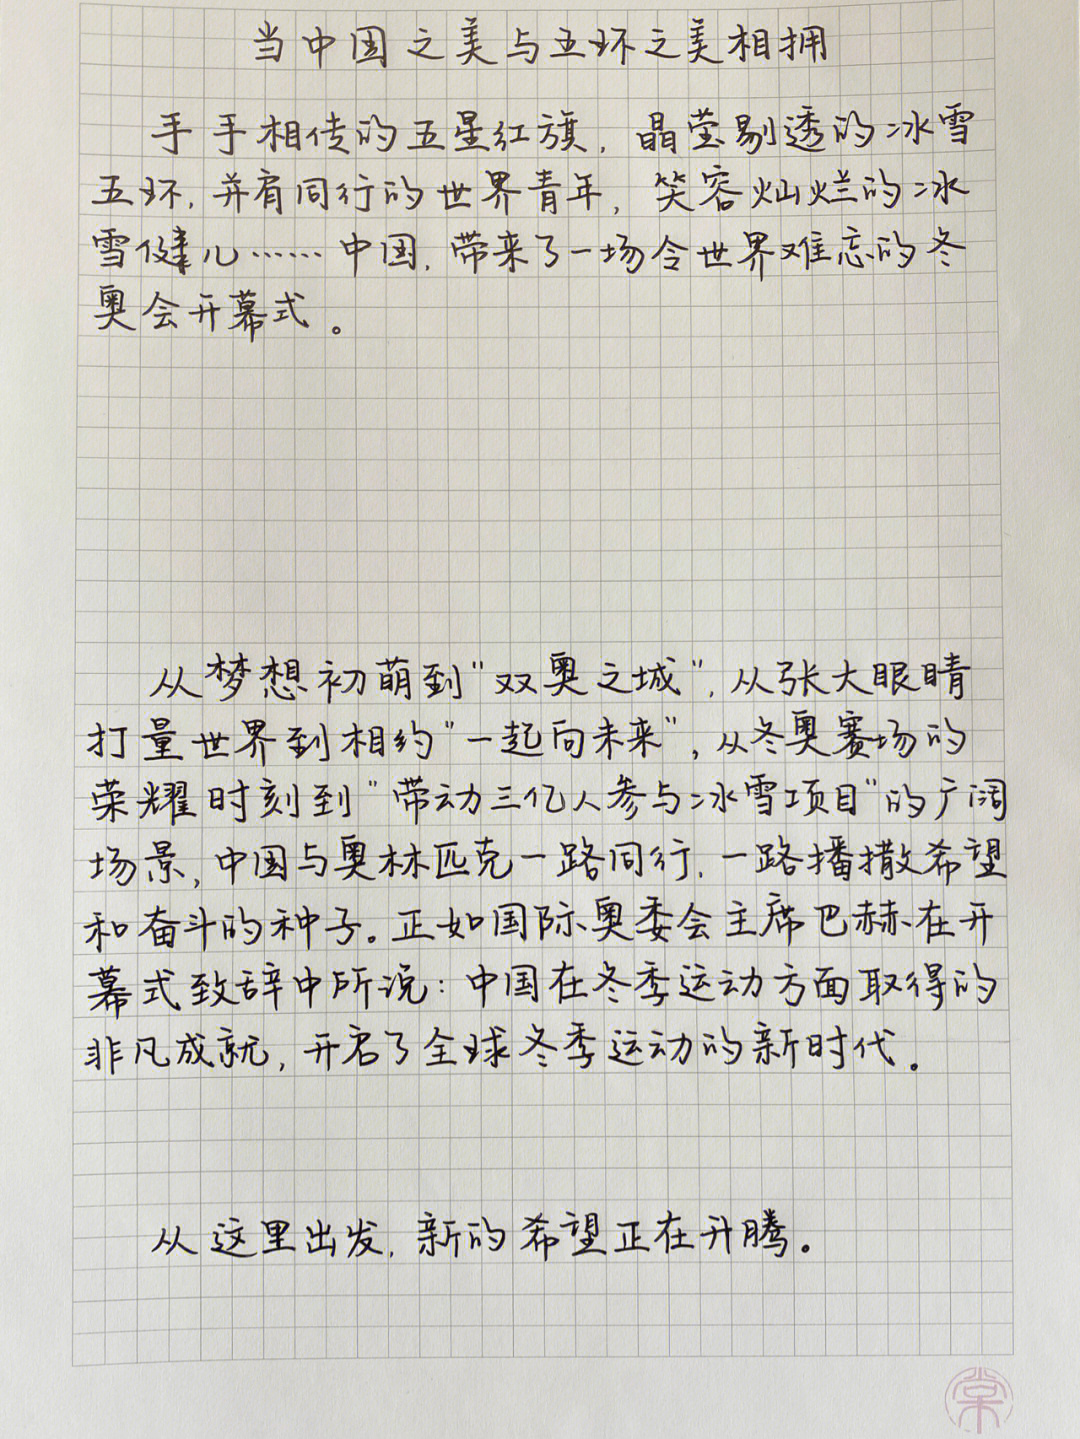 当中国之美与五环之美相拥
手手相传的五星红旗，晶莹剔透的冰雪
五环，并肩同行的世界青年，笑容灿烂的冰
雪健儿……中国，带来了一场令世界难忘的冬
奥会开幕式。
从梦想初萌到“双奥之城”，从张大眼睛
打量世界到相约“一起向未来”，从冬奥赛场的
荣耀时刻到“带动三亿人参与冰雪项目”的广阔
场景，中国与奥林匹克一路同行，一路播撒希望
和奋斗的种子。正如国际奥委会主席巴赫在开
幕式致辞中所说：中国在冬季运动方面取得的
非凡成就，开启了全球冬季运动的新时代。
从这里出发，新的希望正在升腾。
棠